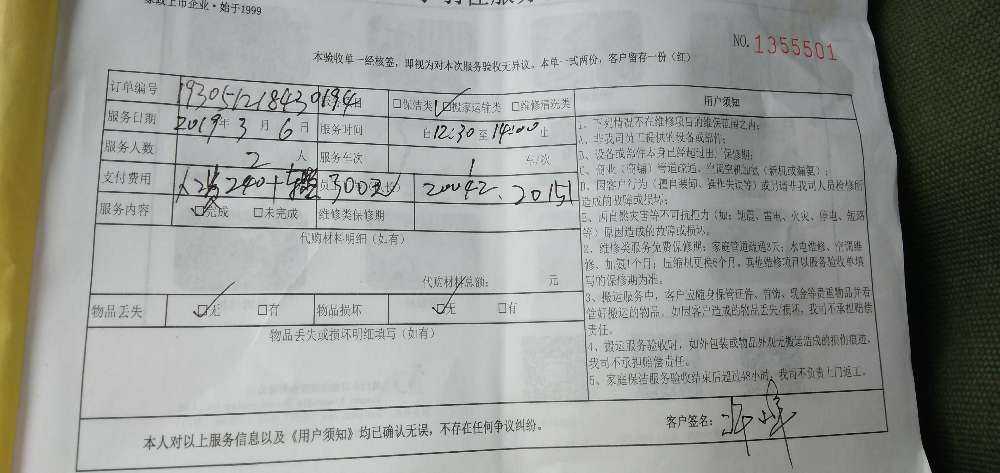 家政上市企业·始于1999
NO.1355501
本验收单一经核签，即视为对本次服务验收无异议。本单一式两份，客户留存一份（红）
订单编号 193051218430194 □保洁类 ☑搬家运输类 □维修清洗类
服务日期 2019年3月6日 服务时间 自12:30至14:00止
服务人数 2人 服务车次 1 车/次
支付费用 240+ 300元 20042、20151
服务内容 ☑完成 □未完成 维修类保修期
代购材料明细（如有）
代购材料总额： 元
物品丢失 ☑无 □有 物品损坏 ☑无 □有
物品丢失或损坏明细填写（如有）
用户须知
1、下列情况不在维修项目的维保范围之内：
A、非我司员工提供的设备或部件；
B、设备或部件本身已经超过出厂保修期；
D、因客户行为（擅自装卸、操作失误等）或另请非我司人员检修所
造成的故障或损坏；
E、因自然灾害等不可抗拒力（如：地震、雷电、火灾、停电、短路
等）原因造成的故障或损坏。
2、维修类服务免费保修期：家庭管道疏通2天；水电维修、空调维
修、加氨1个月；压缩机更换6个月，其他维修项目以服务验收单填
写的保修期为准。
3、搬运服务中，客户应随身保管证件、首饰、现金等贵重物品并看
管好搬运的物品。如因客户造成的物品丢失/损坏，我司不承担赔偿
责任。
4、搬运服务验收时，如外包装或物品外观无搬运造成的损伤痕迹，
我司不承担赔偿责任。
5、家庭保洁服务验收结束后超过48小时，我司不负责上门返工。
本人对以上服务信息以及《用户须知》均已确认无误，不存在任何争议纠纷。
客户签名：